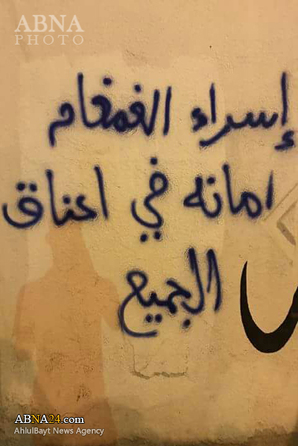 ABNA
PHOTO
إسراء الغمغام
امانه في اعناق
الجميع
ABNA24.com
AhlulBayt News Agency